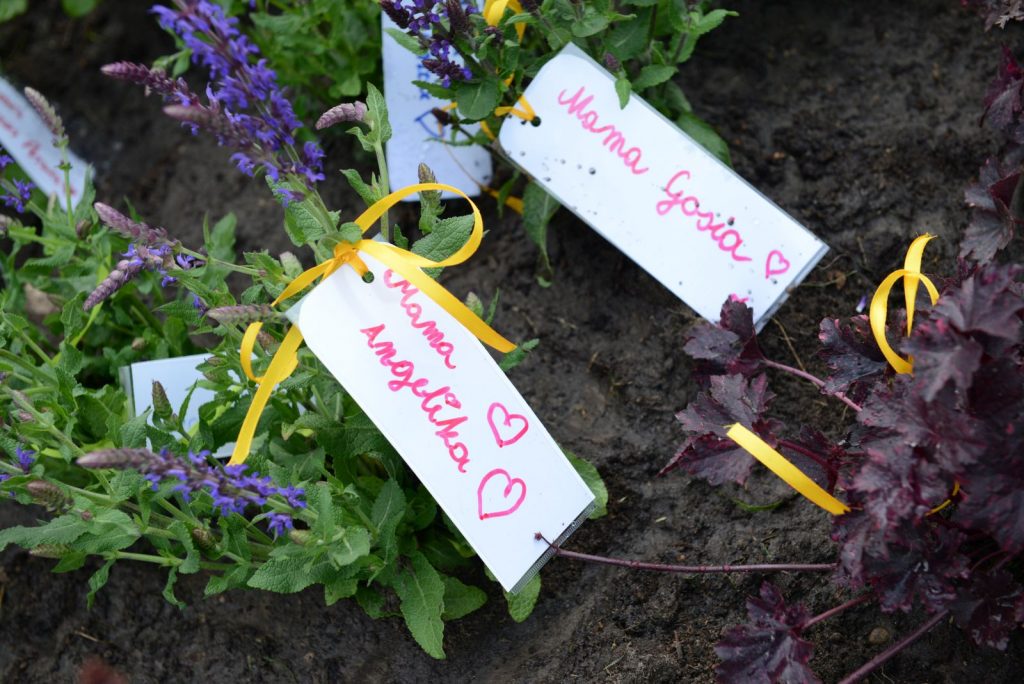 Mama
Gosia
Mama
Angelika